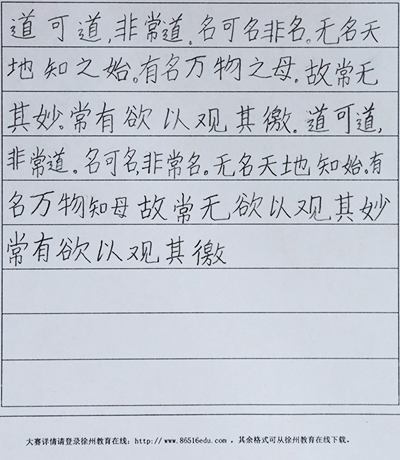 道可道,非常道。名可名非名。无名天
地知之始。有名万物之母。故常无
其妙。常有欲以观其徼。道可道,
非常道。名可名,非常名。无名天地知始。有
名万物知母故常无欲以观其妙
常有欲以观其徼
大赛详情请登录徐州教育在线:http://www.86516edu.com 。其余格式可从徐州教育在线下载。